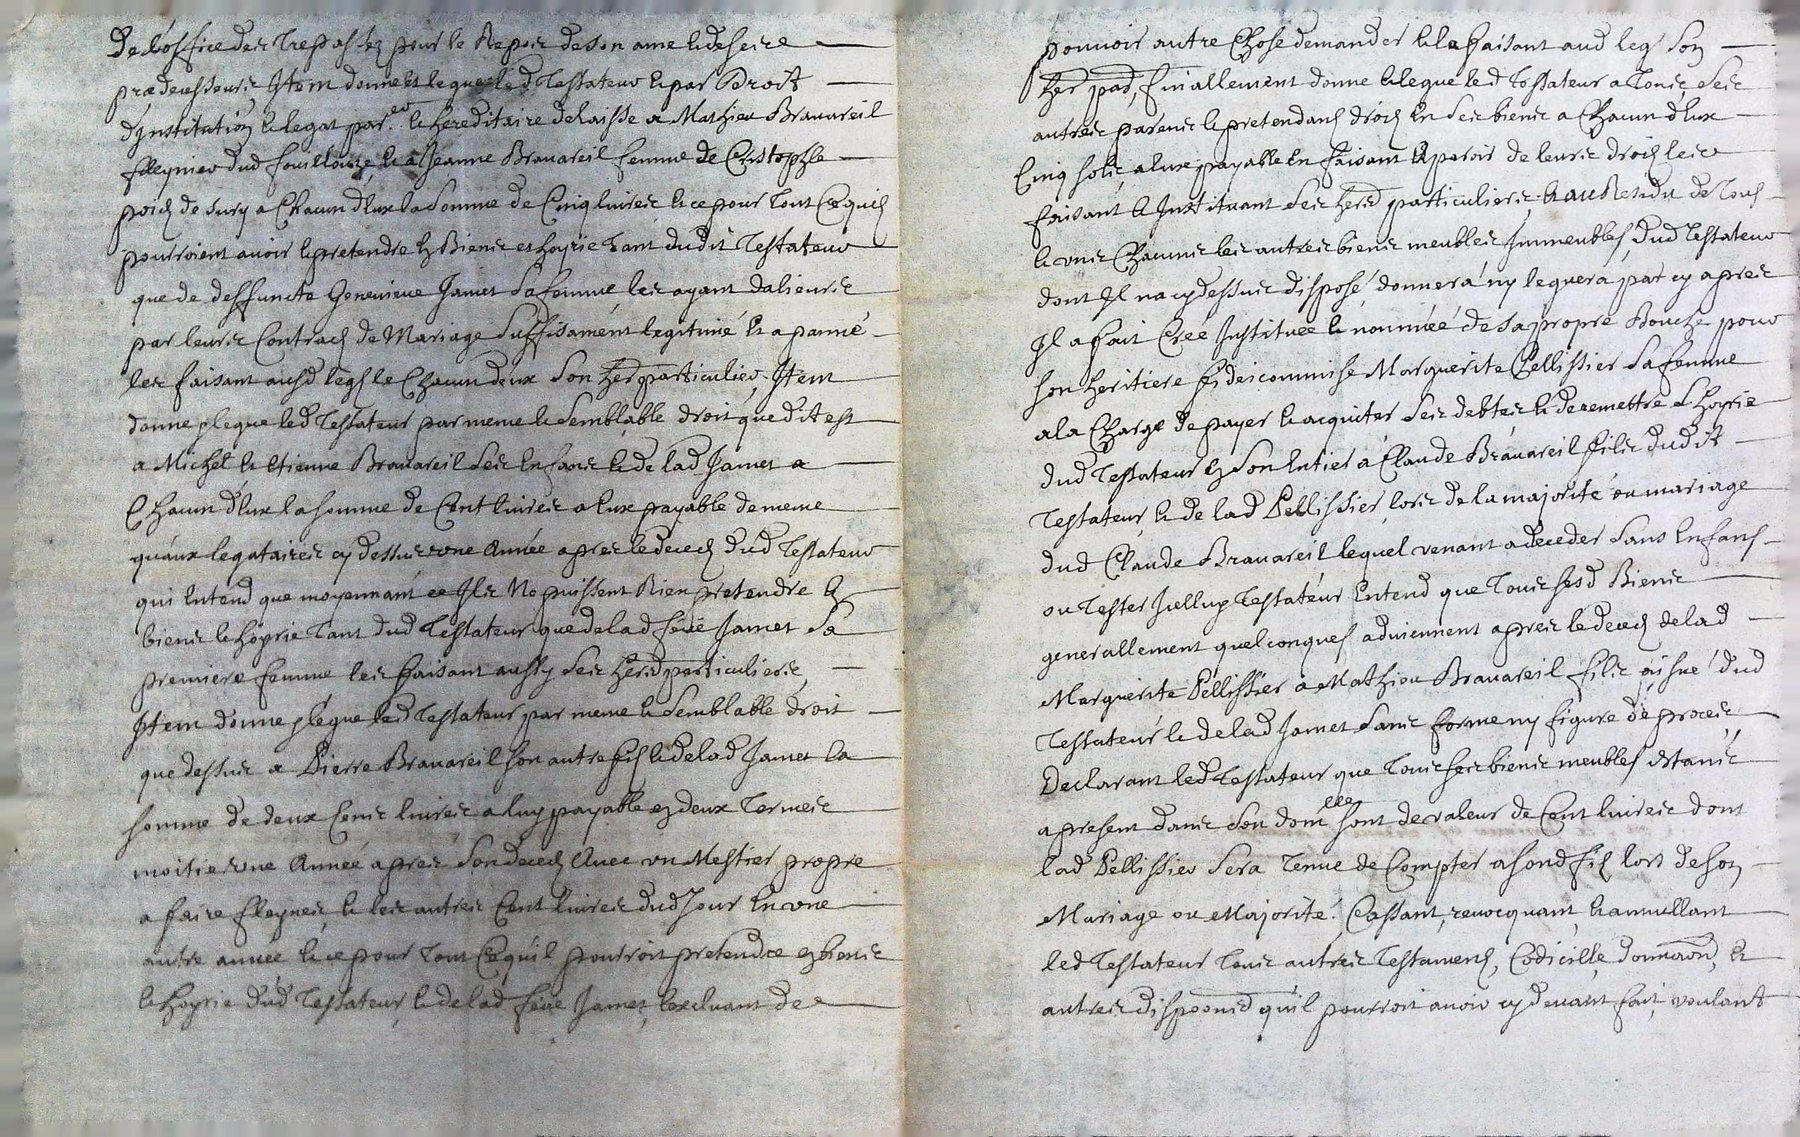 De l'office des Trepassez pour le Repos de son ame et de ses
predecesseurs Item donne et legue led Testateur et par Droit
d'Institution et legat par.er et hereditaire delaisse a Mathieu Bravareil
ffleynier dud fouillouze, et a Jeanne Bravareil femme de Cristophle
de Sury a Chacun d'Eux la Somme de Cinq livres et ce pour Tout Ce quils
pourroient avoir et pretendre ez Biens et hoyrie Tant dudit Testateur
que de deffuncte Genevieve Jamet Sa femme, les ayant dalieurs
par leurs Contracts de Mariage Suffisament legitimé et apanné
les faisant ausd legs et Chacun deux Son herd particulier. Item
donne et legue led Testateur par meme et Semblable droit que dit est
a Michel et Etienne Bravareil Ses Enfans et de lad Jamet a
Chacun d'Eux la Somme de Cent livres a Eux payable de meme
qu'aux legataires cy dessus une Année apres le deceds dud Testateur
qui Entend que moyennant ce Ils Ne puissent Rien pretendre Ez
biens et hoyrie Tant dud Testateur que de lad feüe Jamet Sa
premiere femme les faisant aussy Ses herds particuliers,
Item donne et legue led Testateur par meme et Semblable droit
que dessus a Pierre Bravareil Son autre fils et de lad Jamet la
Somme de deux Cens livres a luy payable ez deux Termes
moitie une Année apres Son deceds Avec un Mestier propre
a faire ffleynes, et les autres Cent livres dud Jour En une
autre année et ce pour Tout Ce qu'il pourroit pretendre ez biens
et hoyrie dud Testateur, et de lad feüe Jamet, l'excluant de
pouvoir autre Chose demander et le faisant aud leg Son
her pad, finallement donne et legue led Testateur a Tous Ses
autres parens et pretendants droits En Ses biens a Chacun d'Eux
Cinq Sols, a Eux payable En faisant Aparoir de leurs droits les
faisant et Instituant Ses herds particuliers. Et au Residu de Tous
et uns Chacuns les autres biens meubles Immeubles, dud Testateur
dont Il na cy dessus disposé, donnera ny leguera, par cy apres
Il a fait Creé Instituée et nommée de Sa propre Bouche pour
Son heritiere fideicommise Marguerite Pellissier Sa femme
a la Charge de payer et acquiter Ses debtes et de remettre L'hoyrie
dud Testateur Ez Son Entier a Claude Bravareil fils dudit
Testateur, et de lad Pellissier, lors de la majorité ou mariage
dud Claude Bravareil lequel venant a deceder Sans Enfans
ou Tester Icelluy Testateur Entend que Tous Sesd Biens
generallement quelconques adviennent apres le deceds de lad
Marguerite Pellissier a Mathieu Bravareil fils aisné dud
Testateur et de lad Jamet Sans forme ny figure de proces
Declarant led Testateur que Tous Ses biens meubles Estans
a present dans Son domlle Sont de valeur de Cent livres dont
lad Pellissier Sera Tenue de Compter a Sond fils lors de Son
Mariage ou Majorité. Cassant, revocquant, et annullant
led Testateur Tous autres Testaments, Codicille, donnaon, et
autres dispoonsd qu'il pourroit avoir cy devant fait, voulant